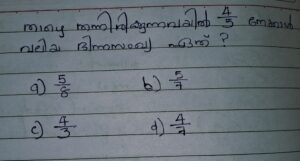 താഴെ തന്നിരിക്കുന്നവയിൽ 4/5 നേക്കാൾ
വലിയ ഭിന്നസംഖ്യ ഏത് ?
a) 5/8 b) 5/7
c) 4/3 d) 4/7